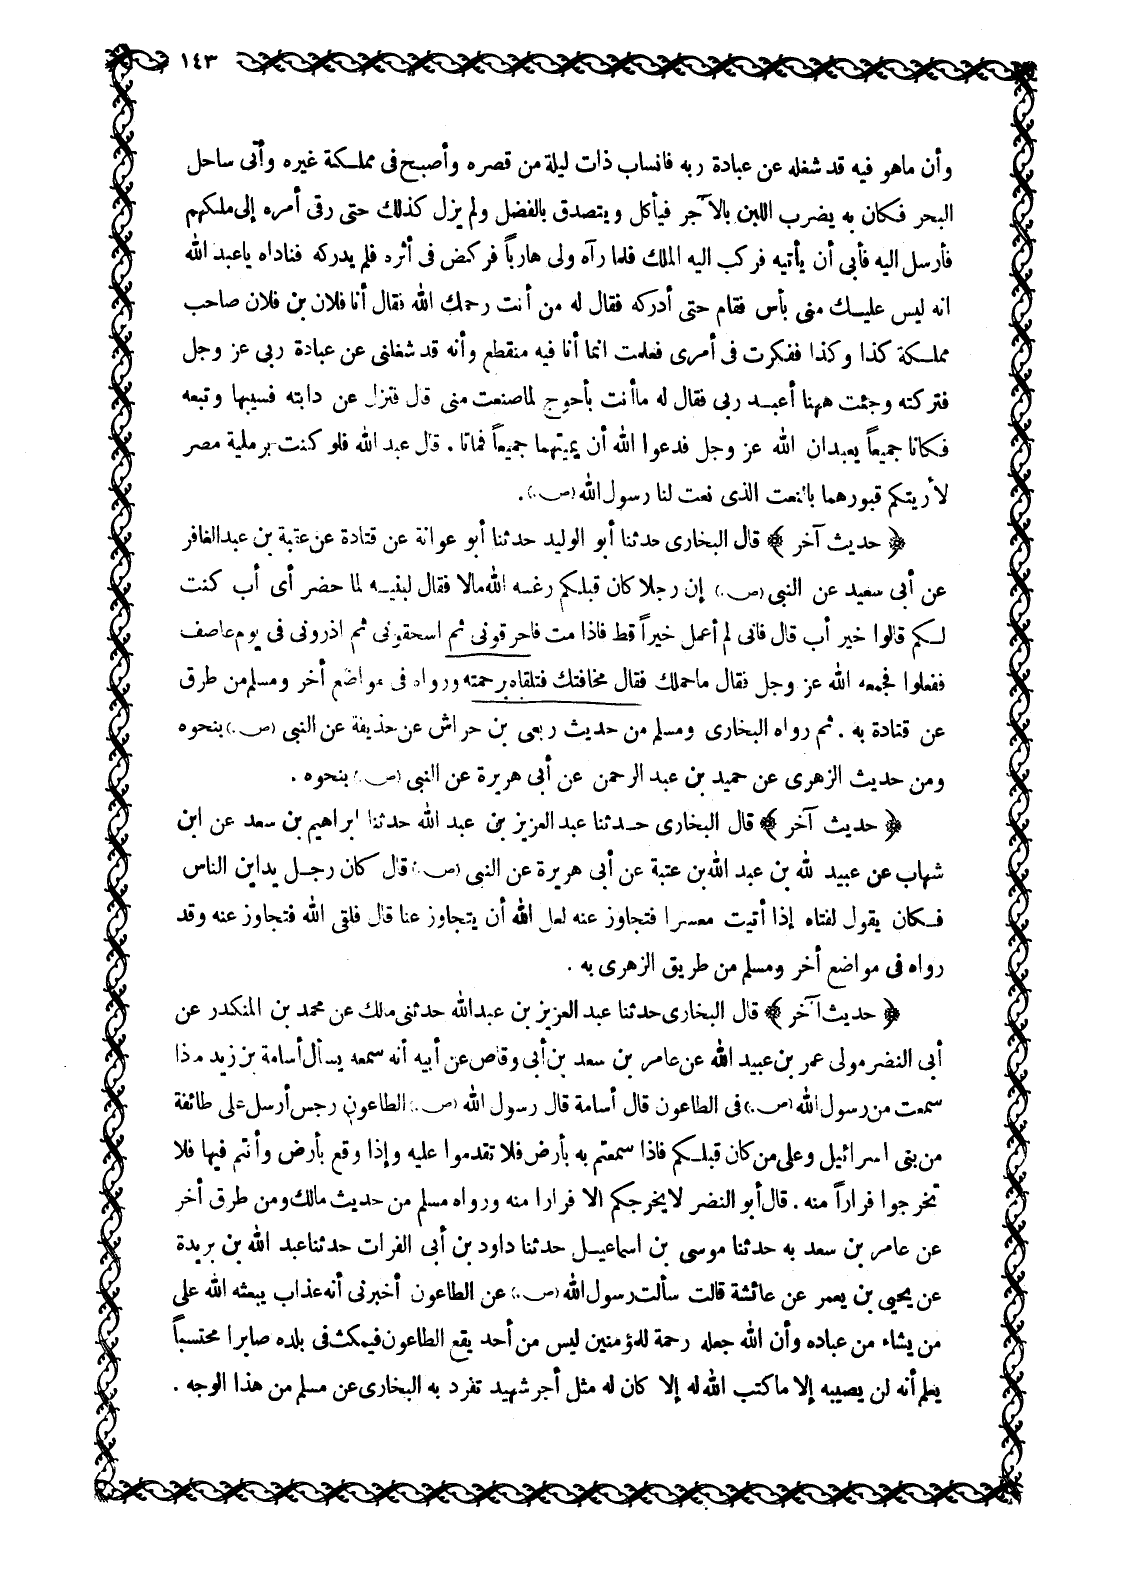 ١٤٣
وأن ماهو فيه قد شغله عن عبادة ربه فانساب ذات ليلة من قصره وأصبح فى مملكة غيره وأتى ساحل
البحر فكان به يضرب اللبن بالآجر فيأكل ويتصدق بالفضل ولم يزل كذلك حتى رقى أمره إلى ملكهم
فأرسل اليه فأبى أن يأتيه فركب اليه الملك فلما رآه ولى هارباً فركض فى أثره فلم يدركه فناداه ياعبد الله
انه ليس عليك منى بأس فقام حتى أدركه فقال له من أنت رحمك الله فقال أنا فلان بن فلان صاحب
مملكة كذا وكذا ففكرت فى أمرى فعلمت انما أنا فيه منقطع وأنه قد شغلنى عن عبادة ربى عز وجل
فتركته وجئت ههنا أعبد ربى فقال له ماأنت بأحوج لماصنعت منى قال فنزل عن دابته فسيبها وتبعه
فكانا جميعاً يعبدان الله عز وجل فدعوا الله أن يميتهما جميعاً فماتا . قال عبد الله فلو كنت برملية مصر
لأريتكم قبورهما بالنعت الذى نعت لنا رسول الله (ص.) .
﴿ حديث آخر ﴾ قال البخارى حدثنا أبو الوليد حدثنا أبو عوانة عن قتادة عن عتبة بن عبدالغافر
عن أبى سعيد عن النبى (ص.) إن رجلا كان قبلكم رغسه الله مالا فقال لبنيه لما حضر أى أب كنت
لكم قالوا خير أب قال فانى لم أعمل خيراً قط فاذا مت فاحرقونى ثم اسحقونى ثم اذرونى فى يوم عاصف
ففعلوا فجمعه الله عز وجل فقال ماحملك فقال مخافتك فتلقاه برحمته ورواه فى مواضع أخر ومسلم من طرق
عن قتادة به . ثم رواه البخارى ومسلم من حديث ربعى بن حراش عن حذيفة عن النبى (ص.) بنحوه
ومن حديث الزهرى عن حميد بن عبد الرحمن عن أبى هريرة عن النبى (ص.) بنحوه .
﴿ حديث آخر ﴾ قال البخارى حدثنا عبد العزيز بن عبد الله حدثنا ابراهيم بن سعد عن ابن
شهاب عن عبيد لله بن عبد الله بن عتبة عن أبى هريرة عن النبى (ص.) قال كان رجل يداين الناس
فكان يقول لفتاه إذا أتيت معسرا فتجاوز عنه لعل الله أن يتجاوز عنا قال فلقى الله فتجاوز عنه وقد
رواه فى مواضع أخر ومسلم من طريق الزهرى به .
﴿ حديث آخر ﴾ قال البخارى حدثنا عبد العزيز بن عبدالله حدثنى مالك عن محمد بن المنكدر عن
أبى النضر مولى عمر بن عبيد الله عن عامر بن سعد بن أبى وقاص عن أبيه أنه سمعه يسأل أسامة بن زيد مذا
سمعت من رسول الله (ص.) فى الطاعون قال أسامة قال رسول الله (ص.) الطاعون رجس أرسل على طائفة
من بنى اسرائيل وعلى من كان قبلكم فاذا سمعتم به بأرض فلا تقدموا عليه وإذا وقع بأرض وأنتم فيها فلا
تخرجوا فراراً منه . قال أبو النضر لا يخرجكم الا فرارا منه ورواه مسلم من حديث مالك ومن طرق أخر
عن عامر بن سعد به حدثنا موسى بن اسماعيل حدثنا داود بن أبى الفرات حدثنا عبد الله بن بريدة
عن يحيى بن يعمر عن عائشة قالت سألت رسول الله (ص.) عن الطاعون أخبرنى أنه عذاب يبعثه الله على
من يشاء من عباده وأن الله جعله رحمة للمؤمنين ليس من أحد يقع الطاعون فيمكث فى بلده صابرا محتسباً
يعلم أنه لن يصيبه إلا ماكتب الله له إلا كان له مثل أجر شهيد تفرد به البخارى عن مسلم من هذا الوجه .